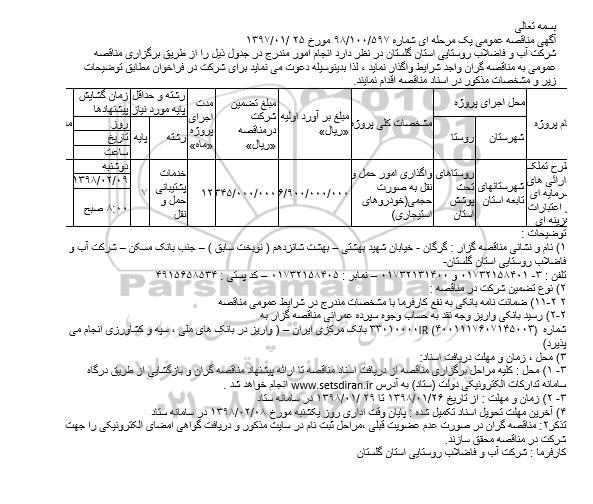 بسمه تعالی
آگهی مناقصه عمومی یک مرحله ای شماره ۹۸/۱۰۰/۵۹۷ مورخ ۲۵ /۱۳۹۷/۰۱
شرکت آب و فاضلاب روستایی استان گلستان در نظر دارد انجام امور مندرج در جدول ذیل را از طریق برگزاری مناقصه
عمومی به مناقصه گران واجد شرایط واگذار نماید ، لذا بدینوسیله دعوت می نماید برای شرکت در فراخوان مطابق توضیحات
زیر و مشخصات مذکور در اسناد مناقصه اقدام نمایند.
ام پروژه
محل اجرای پروژه
شهرستان
روستا
مشخصات کلی پروژه
مبلغ بر آورد اولیه «ریال»
مبلغ تضمین شرکت درمناقصه «ریال»
مدت اجرای پروژه «ماه»
رشته و حداقل پایه مورد نیاز
رشته
پایه
زمان گشایش پیشنهادها
روز
تاریخ
ساعت
طرح تملک
ارائی های
سرمایه ای
اعتبارات
زینه ای
شهرستانهای تابعه استان
روستاهای تحت پوشش استان
واگذاری امور حمل و نقل به صورت حجمی(خودروهای استیجاری)
۶/۹۰۰/۰۰۰/۰۰۰
۳۴۵/۰۰۰/۰۰۰
۱۲
خدمات پشتیبانی حمل و نقل
۷
دوشنبه
۱۳۹۸/۰۲/۰۹
۸:۰۰ صبح
توضیحات :
۱) نام و نشانی مناقصه گزار : گرگان - خیابان شهید بهشتی – بهشت شانزدهم ( نوبخت سابق ) – جنب بانک مسکن – شرکت آب و
فاضلاب روستایی استان گلستان-
تلفن : ۳- ۰۱۷۳۲۱۵۸۴۰۱ و ۰۱۷۳۲۱۳۱۴۰۰ – نمابر : ۰۱۷۳۲۱۵۸۴۰۵ – کد پستی : ۴۹۱۵۶۵۸۵۳۴
۲) نوع تضمین شرکت در مناقصه :
۲ ۲-۱۱) ضمانت نامه بانکی به نفع کارفرما با مشخصات مندرج در شرایط عمومی مناقصه
۲-۲) رسید بانکی واریز وجه نقد به حساب وجوه سپرده عمرانی مناقصه گزار به
شماره (۴۰۰۱۱۱۷۶۰۷۱۴۵۰۰۳) ۳۳۰۱۰۰۰۰IR بانک مرکزی ایران – ( واریز در بانک های ملی ، سپه و کشاورزی انجام می
پذیرد)
۳) محل ، زمان و مهلت دریافت اسناد:
۳- ۱) محل : کلیه مراحل برگزاری مناقصه از دریافت اسناد مناقصه تا ارائه پیشنهاد مناقصه گران و بازگشایی از طریق درگاه
سامانه تدارکات الکترونیکی دولت (ستاد) به آدرس www.setsdiran.ir انجام خواهد شد .
۳- ۲) زمان و مهلت : از تاریخ ۱۳۹۸/۰۱/۲۶ تا ۱۳۹۸/۰۱/ ۲۹ در سامانه ستاد
۴) آخرین مهلت تحویل اسناد تکمیل شده : پایان وقت اداری روز یکشنبه مورخ ۱۳۹۸/۰۲/۰۸ در سامانه ستاد
تذکر۲: مناقصه گران در صورت عدم عضویت قبلی ،مراحل ثبت نام در سایت مذکور و دریافت گواهی امضای الکترونیکی را جهت
شرکت در مناقصه محقق سازند.
کارفرما : شرکت آب و فاضلاب روستایی استان گلستان